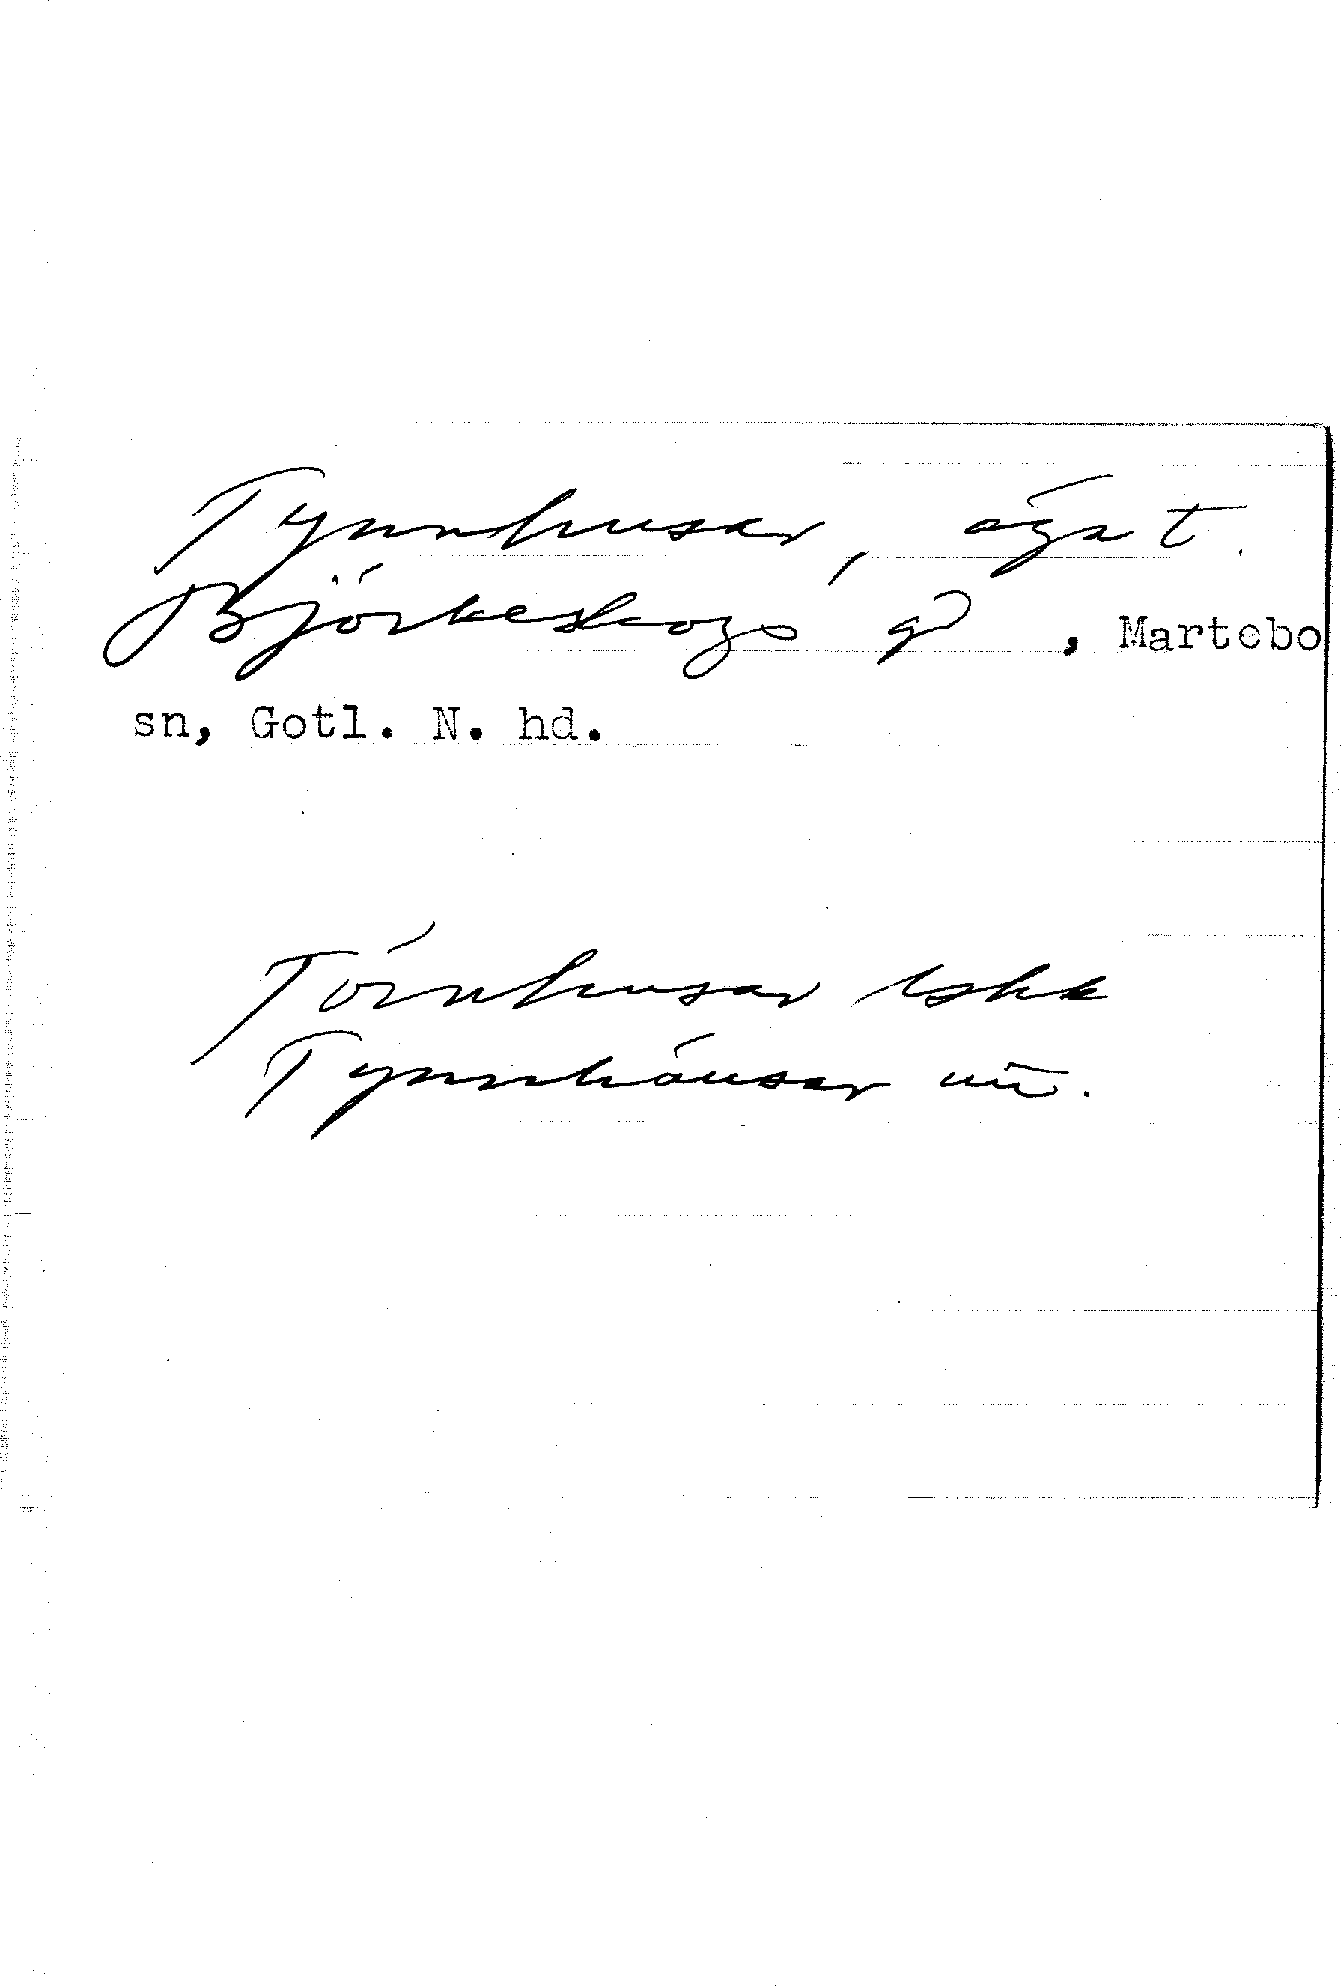 Tynnhusar, ägs t.
Björkeskogs gd, Martebo
sn, Gotl. N. hd.
Törnhusar lskk
Tynnhäusar uü.